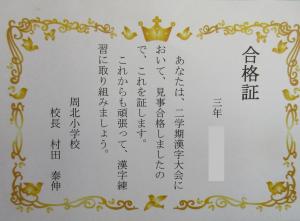 合格証
三年
あなたは、二学期漢字大会に
おいて、見事合格しましたの
で、これを証します。
これからも頑張って、漢字練
習に取り組みましょう。
周北小学校
校長 村田 泰伸